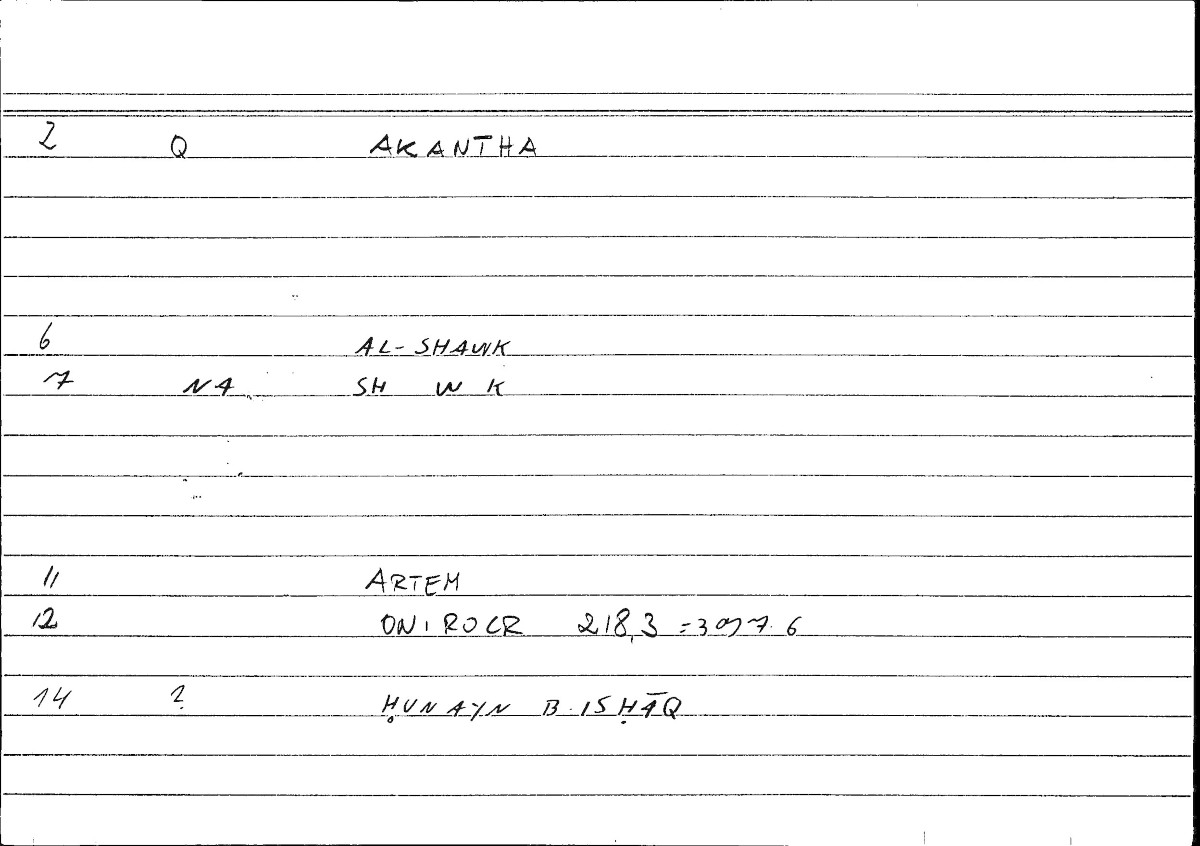 2 Q AKANTHA
6 AL-SHAWK
7 NA SH W K
11 ARTEM
12 ONIROCR 218,3
14 ? ḤUNAYN B. ISḤĀQ